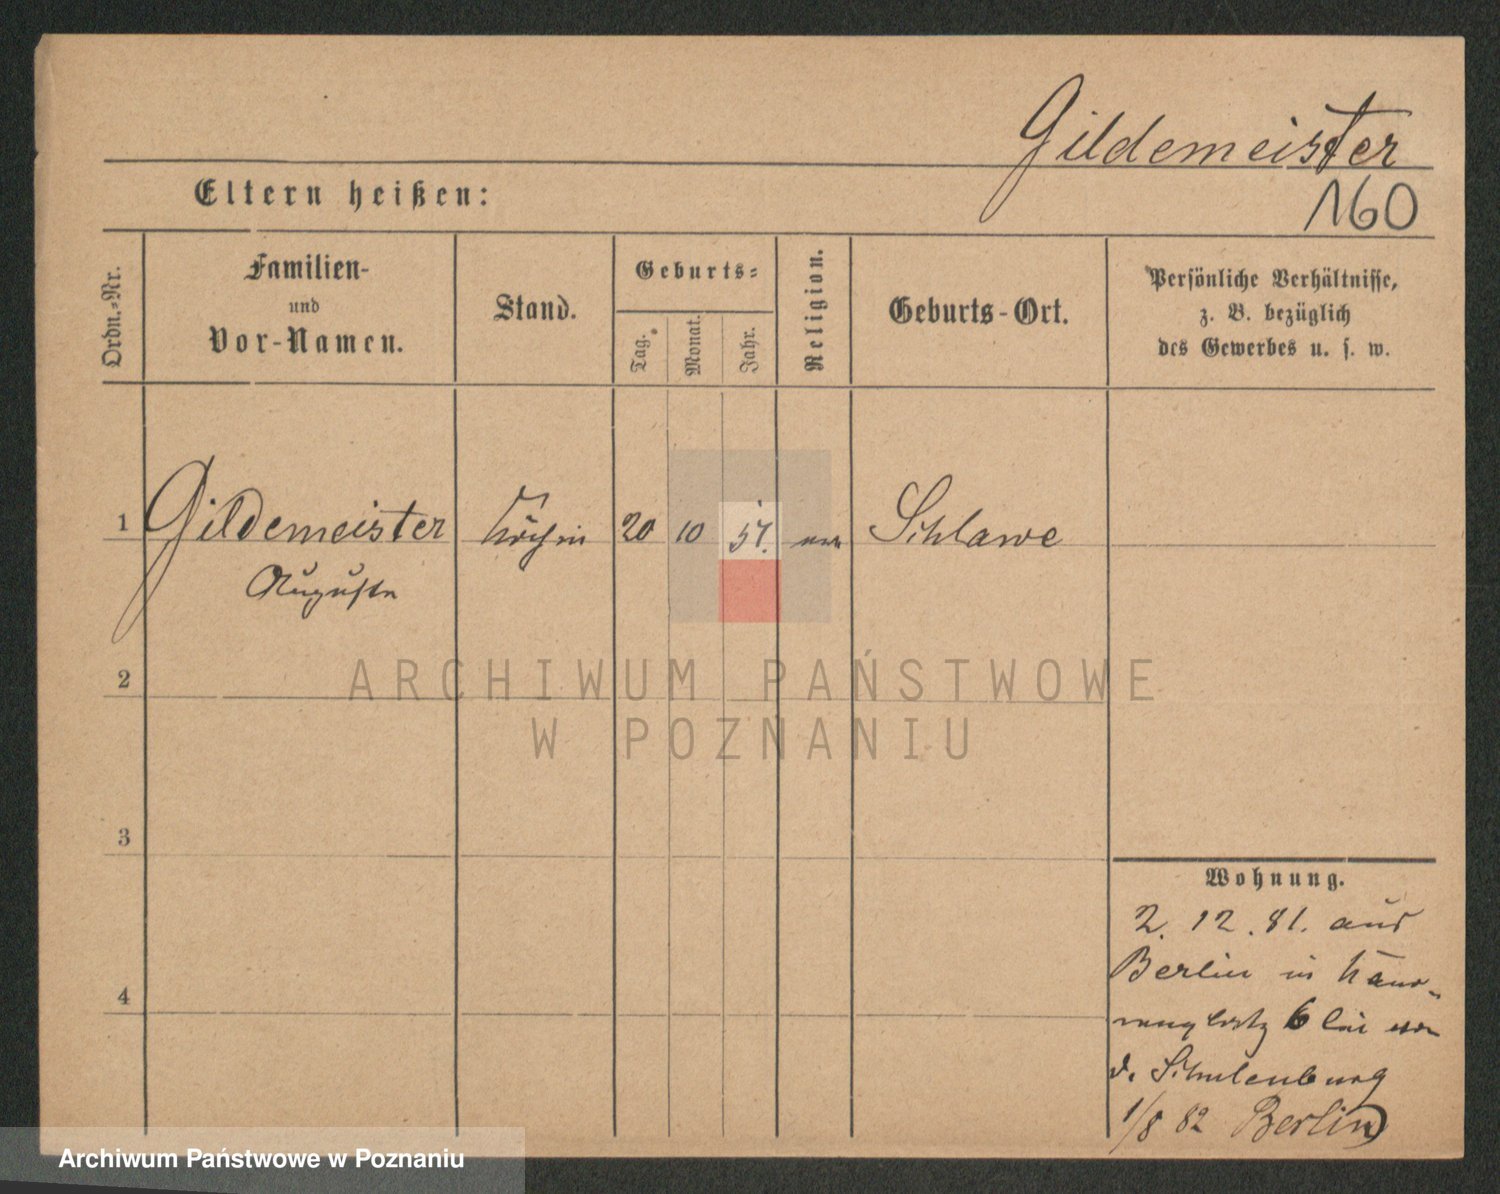 Gildemeister
160
Eltern heißen:
Ordn.-Nr.
Familien-
und
Vor-Namen.
Stand.
Geburts-
Tag.
Monat.
Jahr.
Religion.
Geburts-Ort.
Persönliche Verhältnisse,
z. B. bezüglich
des Gewerbes u. s. w.
1 Gildemeister Köchin 20 10 57. Schlawe
Auguste
2
ARCHIWUM PAŃSTWOWE
W POZNANIU
3
Wohnung.
2. 12. 81. aus
Berlin in
4
6 bei
d. Schulenburg
1/8 82 Berlin
Archiwum Państwowe w Poznaniu